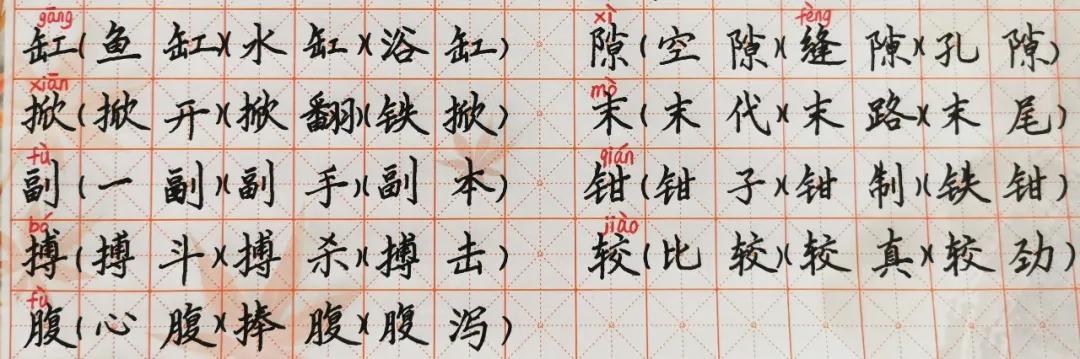 gāng
缸(鱼缸)(水缸)(浴缸)
xiān
掀(掀开)(掀翻)(铁掀)
fù
副(一副)(副手)(副本)
bó
搏(搏斗)(搏杀)(搏击)
fù
腹(心腹)(捧腹)(腹泻)
xì fèng
隙(空隙)(缝隙)(孔隙)
mò
末(末代)(末路)(末尾)
qián
钳(钳子)(钳制)(铁钳)
jiào
较(比较)(较真)(较劲)